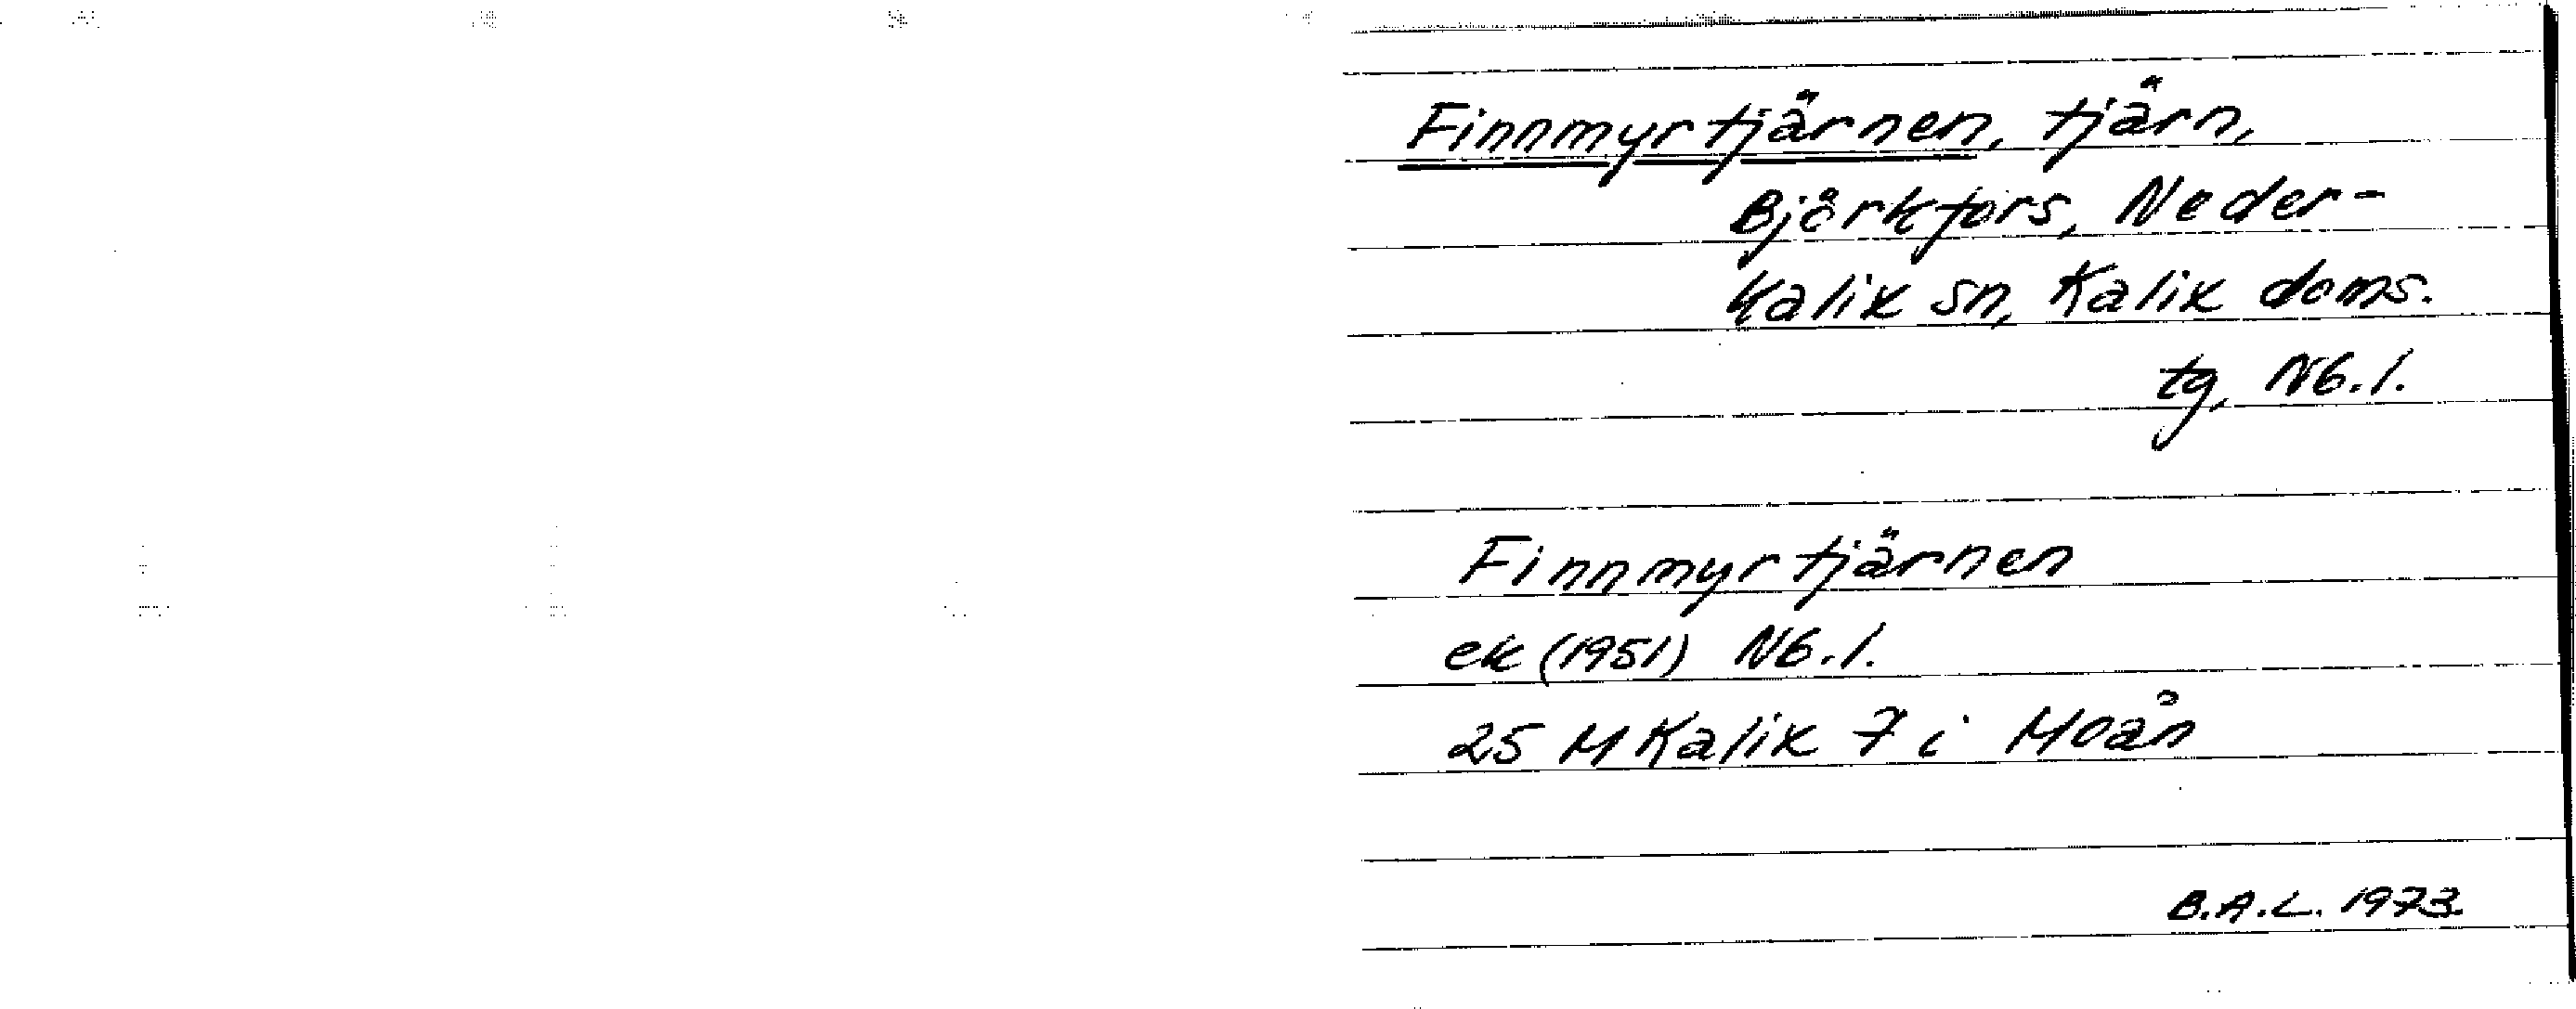 Finnmyrtjärnen, tjärn,
Björkfors, Neder-
kalix sn, Kalix doms.
tg, Nb.l.
Finnmyrtjärnen
ek (1951) Nb.l.
25 M Kalix 7 i Moån
B.A.L. 1973